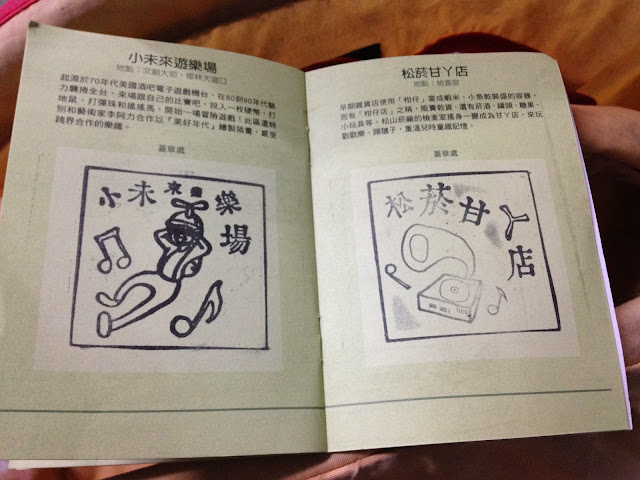 小未來遊樂場
地點：文創大街、椰林大道口
起源於70年代美國酒吧電子遊戲機台，在80到90年代魅
力襲捲全台，來場跟自己的比賽吧，投入一枚硬幣，打
地鼠、打彈珠和搖搖馬，開始一場冒險遊戲！此區還特
別和藝術家李阿力合作以「美好年代」繪製插畫，感受
跨界合作的樂趣。
蓋章處
小未來遊樂場
松菸甘丫店
地點：檢查室
早期雜貨店使用「柑仔」當成蝦米、小魚乾裝盛的容器，
而有「柑仔店」之稱，販賣乾貨、還有菸酒、罐頭、糖果、
小玩具等，松山菸廠的檢查室搖身一變成為甘丫店，來玩
戳戳樂、踢毽子，重溫兒時童趣記憶。
蓋章處
松菸甘丫店